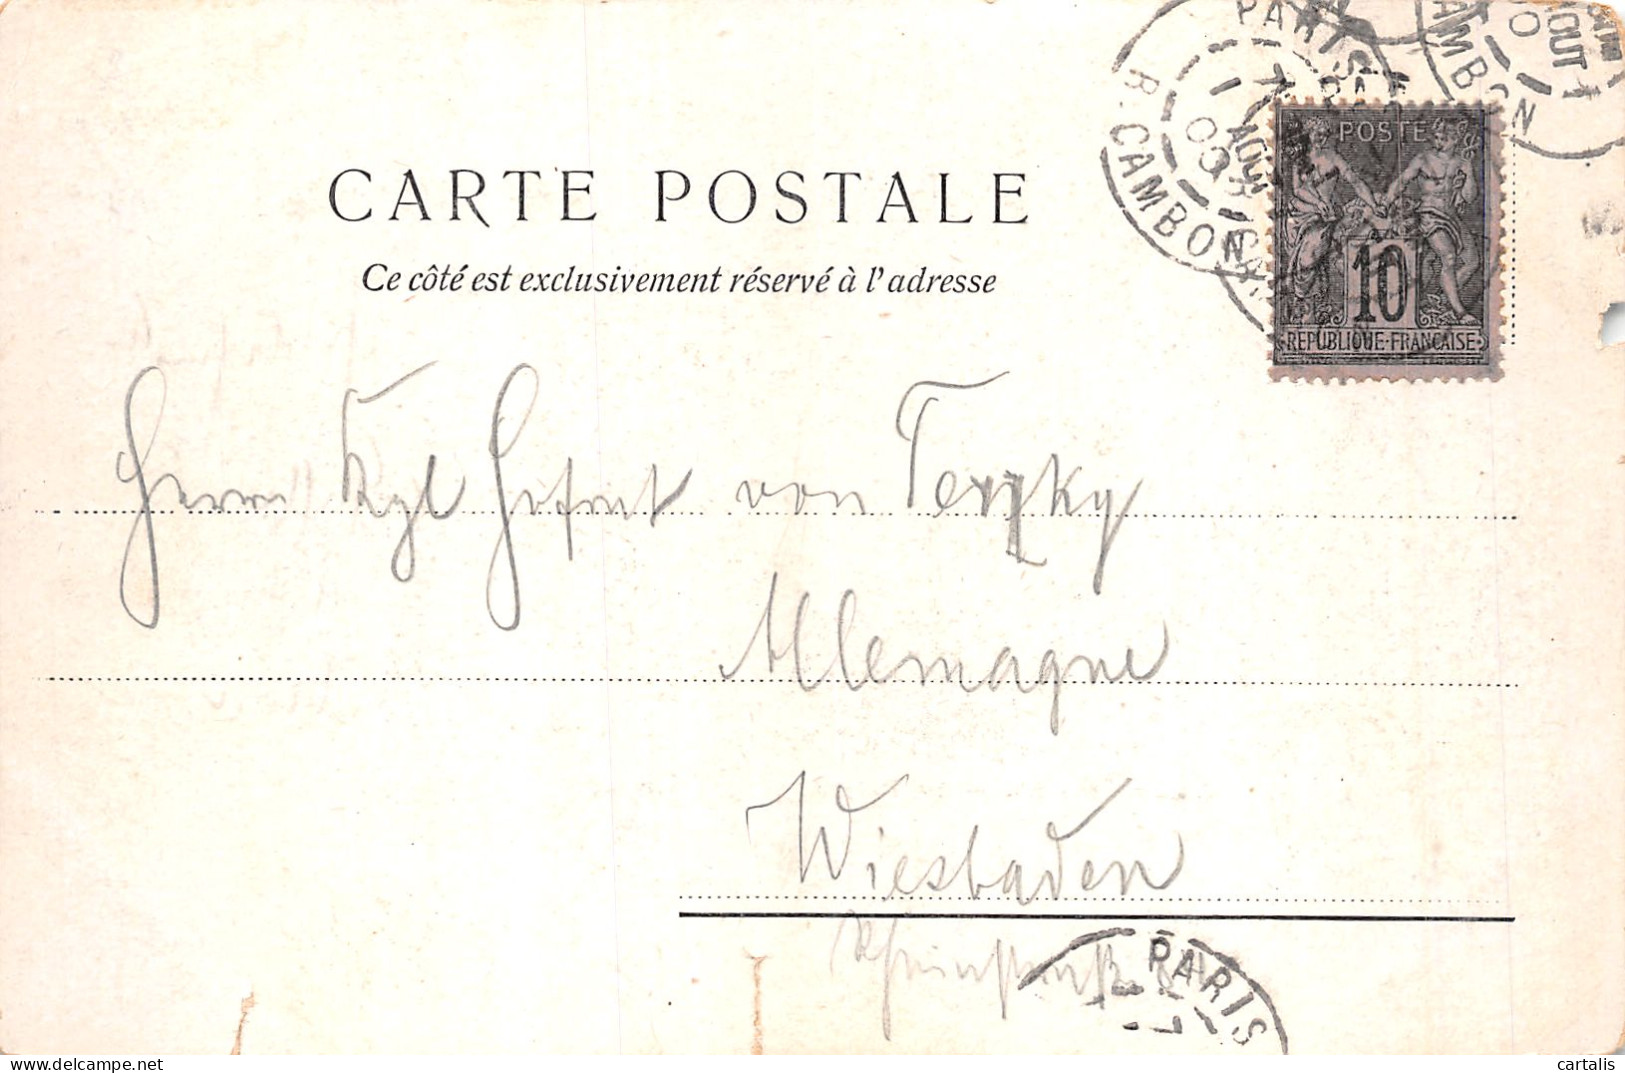 PARIS
R. CAMBON
AOUT
00
AMBON
AOUT
00
POSTE
10
REPUBLIQUE·FRANÇAISE
CARTE POSTALE
Ce côté est exclusivement réservé à l'adresse
Herrn Kgl von Terzky
Allemagne
Wiesbaden
PARIS
cartalis